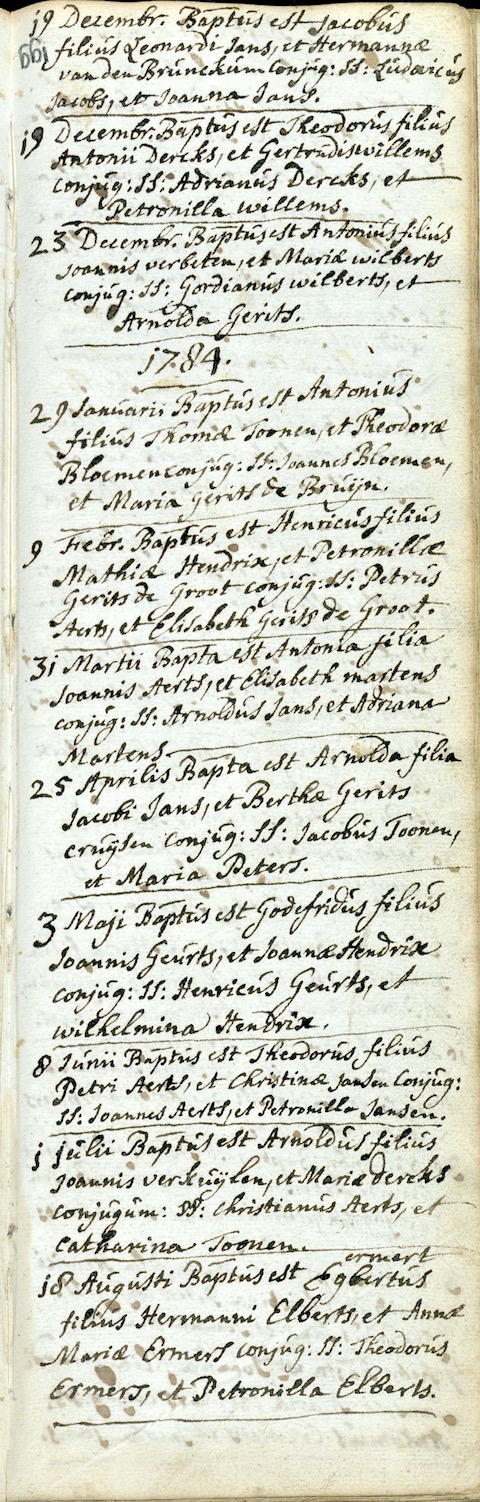 19 Decembr. Baptus est Jacobus
199
filius Leonardi Jans, et Hermannæ
van den Brunckum conjug: SS: Ludovicus
Jacobs, et Joanna Jans.
19 Decembr. Baptus est Theodorus filius
Antonii Dercks, et Gertrudis willems
conjug: SS: Adrianus Dercks, et
Petronilla willems.
23 Decembr. Baptus est Antonius filius
Joannis verbeten, et Mariæ wilberts
conjug: SS: Gordianus wilberts, et
Arnolda Gerits.
1784.
29 Januarii Baptus est Antonius
filius Thomæ Toonen, et Theodoræ
Bloemen conjug: SS: Joannes Bloemen,
et Maria gerits de Bruijn.
9 Febr. Baptus est Henricus filius
Mathiæ Hendrix, et Petronillæ
Gerits de Groot conjug: SS: Petrus
Aerts, et Elisabeth Gerits de Groot.
31 Martii Bapta est Antonia filia
Joannis Aerts, et Elisabeth martens
conjug: SS: Arnoldus Jans, et Adriana
Martens
25 Aprilis Bapta est Arnolda filia
Jacobi Jans, et Berthæ Gerits
cruijsen conjug: SS: Jacobus Toonen,
et Maria Peters.
3 Maji Baptus est Godefridus filius
Joannis Geurts, et Joannæ Hendrix
conjug: SS: Henricus Geurts, et
wilhelmina Hendrix.
8 Junii Baptus est Theodorus filius
Petri Aerts, et Christinæ Jansen conjug:
SS: Joannes Aerts, et Petronilla Jansen.
1 julii Baptus est Arnoldus filius
Joannis verkuijlen, et Mariæ dercks
conjugum: SS: christianus Aerts, et
catharina Toonen.
ermert
18 Augusti Baptus est Egbertus
filius Hermanni Elberts, et Annæ
Mariæ Ermers conjug: SS: Theodorus
Ermers, et Petronilla Elberts.